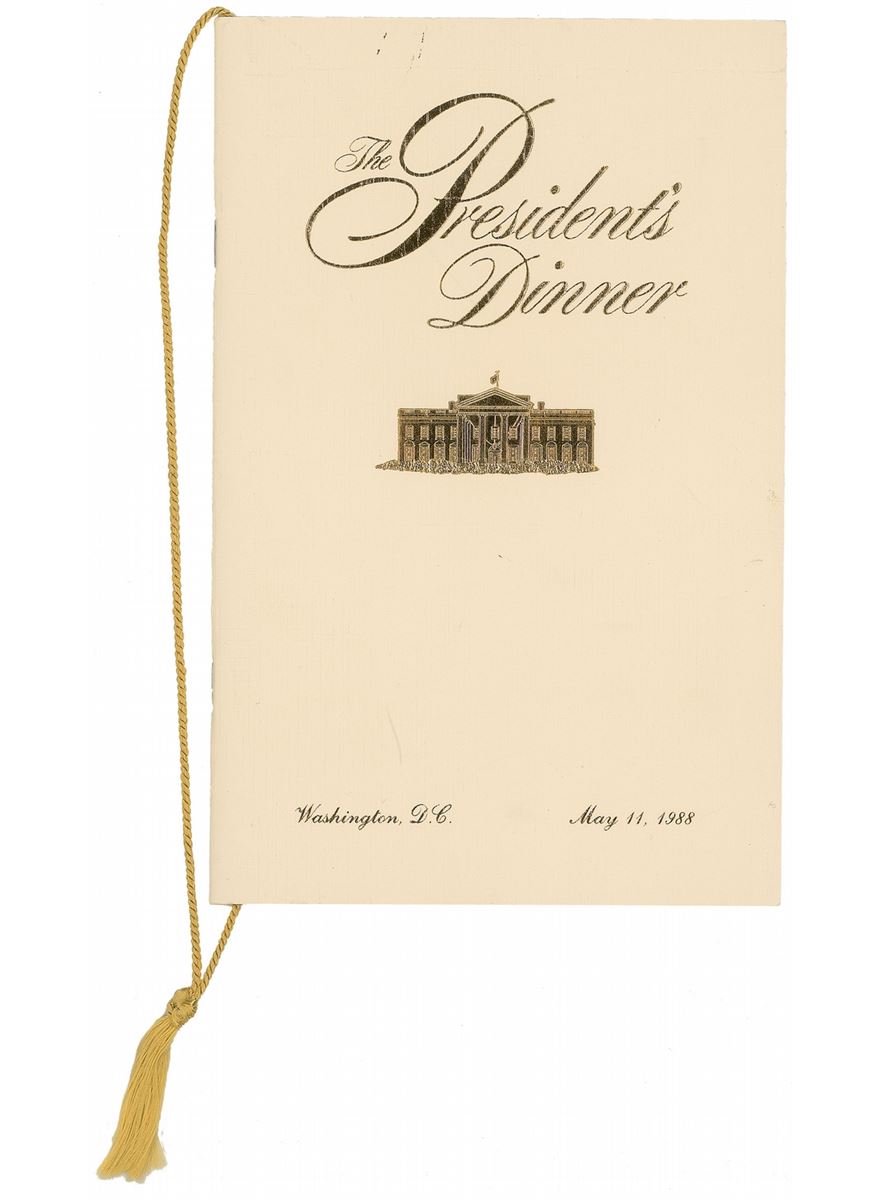 The President's
Dinner
Washington, D.C. May 11, 1988